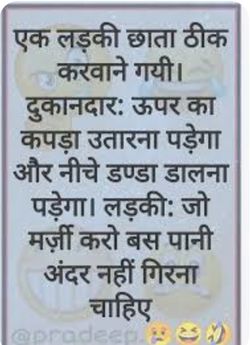 एक लड़की छाता ठीक
करवाने गयी।
दुकानदार: ऊपर का
कपड़ा उतारना पड़ेगा
और नीचे डण्डा डालना
पड़ेगा। लड़की: जो
मर्ज़ी करो बस पानी
अंदर नहीं गिरना
चाहिए
@pradeep.